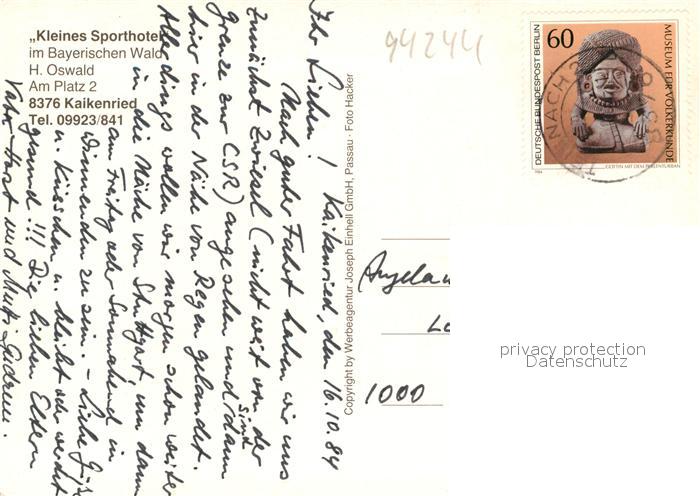 „Kleines Sporthotel
im Bayerischen Wald
H. Oswald
Am Platz 2
8376 Kaikenried
Tel. 09923/841
Kaikenried, den 16.10.84
Ihr Lieben!
Nach guter Fahrt haben wir uns
zunächst Zwiesel (nicht weit von der
Grenze zur CSR) angesehen und sind dann
hier in der Nähe von Regen gelandet.
Allerdings wollen wir morgen schon weiter
in die Nähe von Stuttgart, um dann
am Freitag oder Sonnabend in
Winnenden zu sein. - Liebe Grüße
u. Küsschen u. bleibt oder werdet
gesund!!! Die lieben Eltern
Vater Horst und Mutti Gudrun.
Copyright by Werbeagentur Joseph Einhell GmbH, Passau · Foto Hacker
94244
60
DEUTSCHE BUNDESPOST BERLIN
MUSEUM FÜR VÖLKERKUNDE
GÖTTIN MIT DEM PERLENTURBAN
1984
Angela
1000
privacy protection
Datenschutz